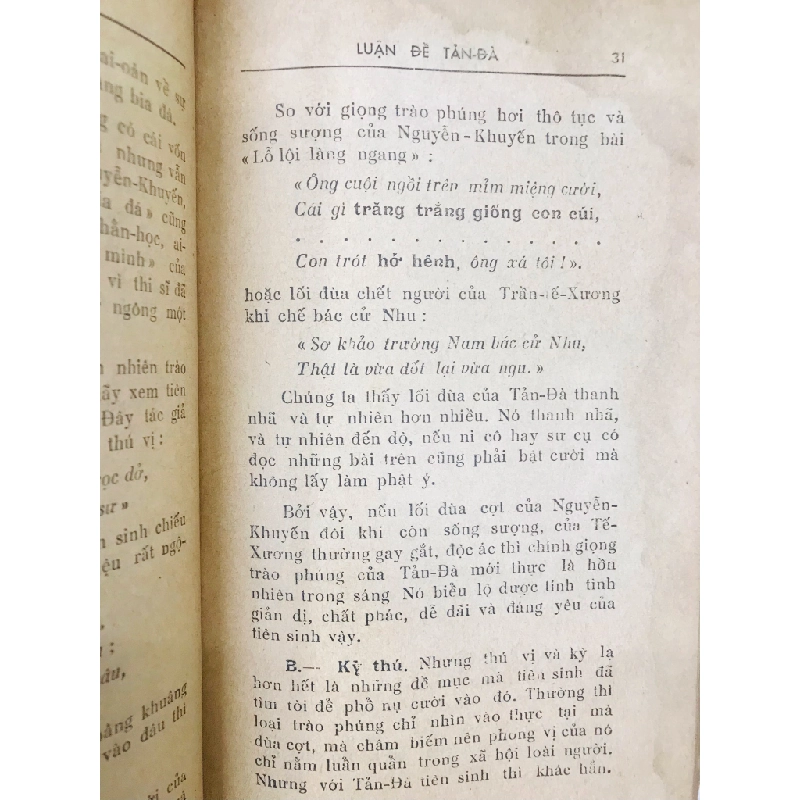 ai-oán về sự
bia đá.
có cái vốn
nhưng vẫn
Nguyễn-Khuyến,
đá » cũng
ai-
minh » của
vì thi sĩ đã
ngông một
nhiên trào
xem tiên
Đây tác giả
thú vị :
đở,
sư »
sinh chiếu
rất ngộ-
khuâng
vào đâu thì
của
LUẬN ĐỀ TẢN-ĐÀ 31
So với giọng trào phúng hơi thô tục và
sống sượng của Nguyễn-Khuyến trong bài
« Lỗ lội làng ngang » :
« Ông cuội ngồi trên mỉm miệng cười,
Cái gì trăng trắng giống con cúi,
. . . . . . . . . . . . .
Con trót hở hênh, ông xá tội ! ».
hoặc lối đùa chết người của Trần-tế-Xương
khi chế bác cử Nhu :
« Sơ khảo trường Nam bác cử Nhu,
Thật là vừa dốt lại vừa ngu. »
Chúng ta thấy lối đùa của Tản-Đà thanh
nhã và tự nhiên hơn nhiều. Nó thanh nhã,
và tự nhiên đến độ, nếu ni cô hay sư cụ có
đọc những bài trên cũng phải bật cười mà
không lấy làm phật ý.
Bởi vậy, nếu lối đùa cợt của Nguyễn-
Khuyến đôi khi còn sống sượng, của Tế-
Xương thường gay gắt, độc ác thì chính giọng
trào phúng của Tản-Đà mới thực là hồn
nhiên trong sáng Nó biểu lộ được tính tình
giản dị, chất phác, dễ dãi và đáng yêu của
tiên sinh vậy.
B.— Kỳ thú. Nhưng thú vị và kỳ lạ
hơn hết là những đề mục mà tiên sinh đã
tìm tòi để phổ nụ cười vào đó. Thường thì
loại trào phúng chỉ nhìn vào thực tại mà
đùa cợt, mà châm biếm nên phong vị của nó
chỉ nằm luẩn quẩn trong xã hội loài người.
Nhưng với Tản-Đà tiên sinh thì khác hẳn.